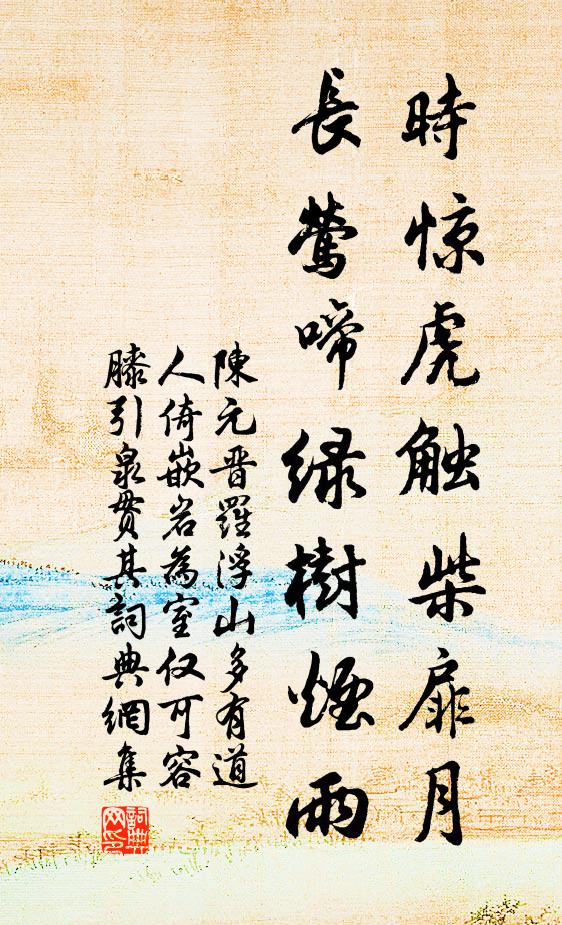 時惊虎触柴扉月
長鶯啼绿樹煙雨
陳元晋羅浮山多有道
人倚嵌岩為室仅可容
膝引泉贯其詞典網集
詞典網印